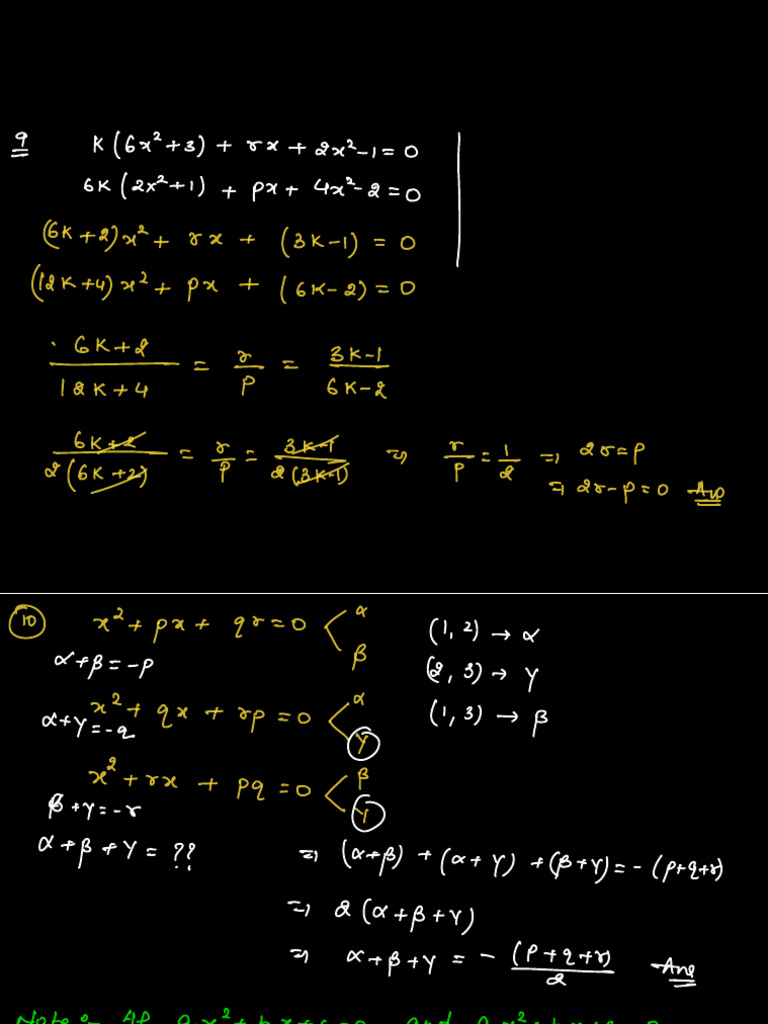 9 K(6x²+3) + rx + 2x²-1=0
6K(2x²+1) + px + 4x²-2=0
(6K+2)x² + rx + (3K-1) = 0
(12K+4)x² + px + (6K-2) = 0
6K+2/12K+4 = r/p = 3K-1/6K-2
6K+2/2(6K+2) = r/p = 3K-1/2(3K-1) ⇒ r/p = 1/2 ⇒ 2r=p
⇒ 2r-p=0 Ans
10 x² + px + qr = 0 α β (1,2) → α
α+β = -p (2,3) → γ
x² + qx + rp = 0 α γ (1,3) → β
α+γ = -q
x² + rx + pq = 0 β γ
β+γ = -r
α+β+γ = ?? ⇒ (α+β) + (α+γ) + (β+γ) = -(p+q+r)
⇒ 2(α+β+γ)
⇒ α+β+γ = -(p+q+r)/2 Ans